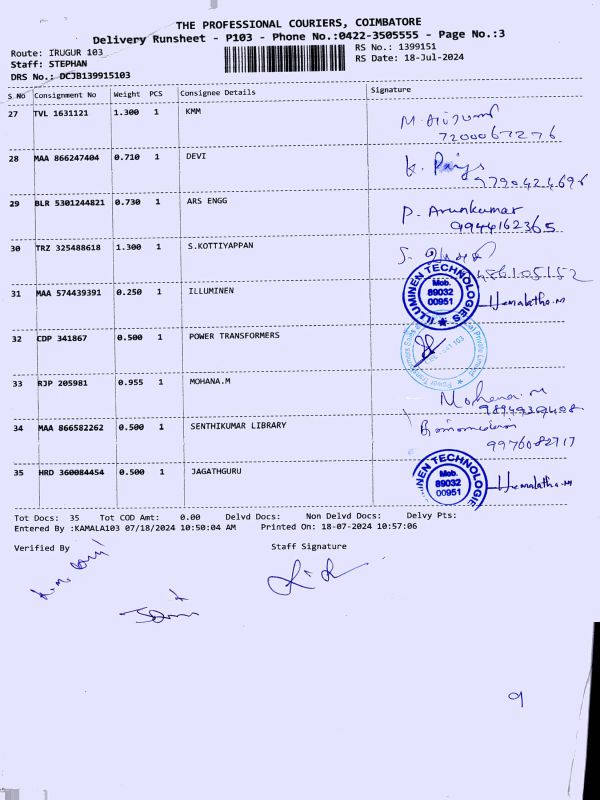 THE PROFESSIONAL COURIERS, COIMBATORE
Delivery Runsheet - P103 - Phone No.:0422-3505555 - Page No.:3
Route: IRUGUR 103
RS No.: 1399151
Staff: STEPHAN
RS Date: 18-Jul-2024
DRS No.: DCJB139915103
S.No Consignment No Weight PCS Consignee Details Signature
27 TVL 1631121 1.300 1 KMM
7200067276
28 MAA 866247404 0.710 1 DEVI
9790424696
29 BLR 5301244821 0.730 1 ARS ENGG P. Arunkumar
9944162365
30 TRZ 325488618 1.300 1 S.KOTTIYAPPAN
31 MAA 574439391 0.250 1 ILLUMINEN
ILLUMINEN TECHNOLOGIES
Mob.
89032
00951
Hemalatha.M
32 CDP 341867 0.500 1 POWER TRANSFORMERS
33 RJP 205981 0.955 1 MOHANA.M Mohana.m
34 MAA 866582262 0.500 1 SENTHIKUMAR LIBRARY
9976082717
35 HRD 360084454 0.500 1 JAGATHGURU
Mob.
89032
00951
Hemalatha.M
Tot Docs: 35 Tot COD Amt: 0.00 Delvd Docs: Non Delvd Docs: Delvy Pts:
Entered By :KAMALA103 07/18/2024 10:50:04 AM Printed On: 18-07-2024 10:57:06
Verified By Staff Signature
9